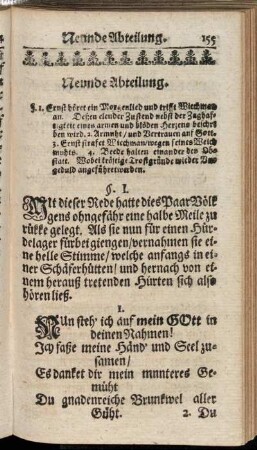 Neunde Abteilung. 155
Neunde Abteilung.
§.1. Ernst höret ein Morgenlied und trifft Wiechman
an. Deßen elender Zustand nebst der Zaghaf-
tigkeit eines armen und blöden Herzens beschrie
ben wird. 2. Armuht/ und Vertrauen auf Gott.
3. Ernst strafet Wiechman wegen seines Weich
muhts. 4. Beede halten einander den Ob-
statt. Wobei kräftige Trostgründe wieder Un-
geduld angeführet werden.
§. I.
Mit dieser Rede hatte dies Paar Völk
gens ohngefähr eine halbe Meile zu
rükke gelegt. Als sie nun für einen Hür-
delager fürbei giengen/ vernahmen sie ei
ne helle Stimme/ welche anfangs in ei
ner Schäferhütten/ und hernach von ei
nem herauß tretenden Hürten sich also
hören ließ.
1.
NUn steh' ich auf mein GOtt in
deinen Nahmen!
Ich faße meine Händ' und Seel zu-
samen/
Es danket dir mein munteres Ge-
müht
Du gnadenreiche Brunkwel aller
Güht. 2. Du